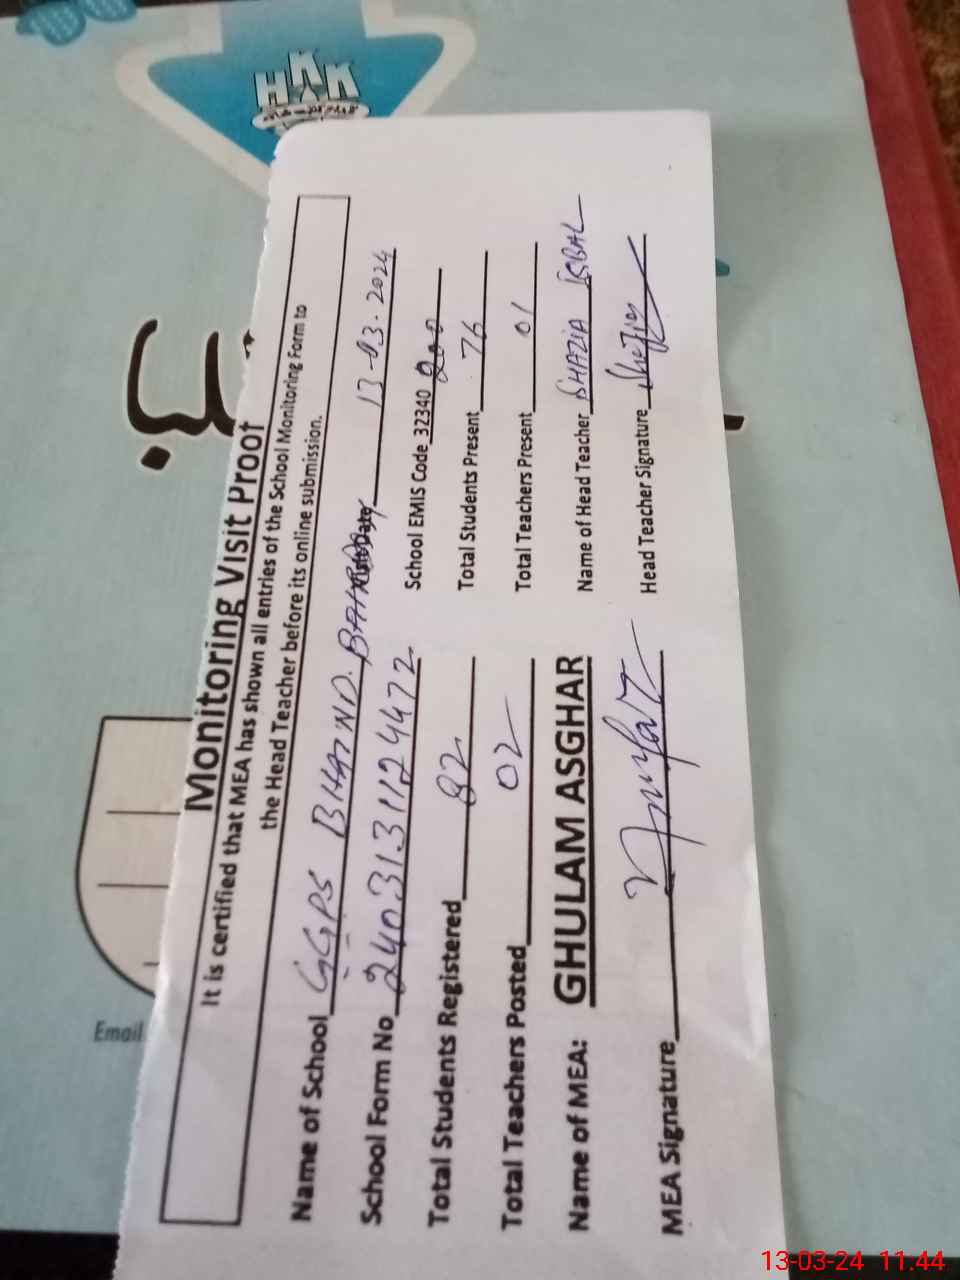 HKK
Email
Monitoring Visit Proof
It is certified that MEA has shown all entries of the School Monitoring Form to
the Head Teacher before its online submission.
Name of School GGPS BHAIND. Visit Date 13-03-2024
School Form No 2403131124472 School EMIS Code 32340 200
Total Students Registered 82 Total Students Present 76
Total Teachers Posted 02 Total Teachers Present 01
Name of MEA: GHULAM ASGHAR Name of Head Teacher SHAZIA IQBAL
MEA Signature Head Teacher Signature
13-03-24 11.44